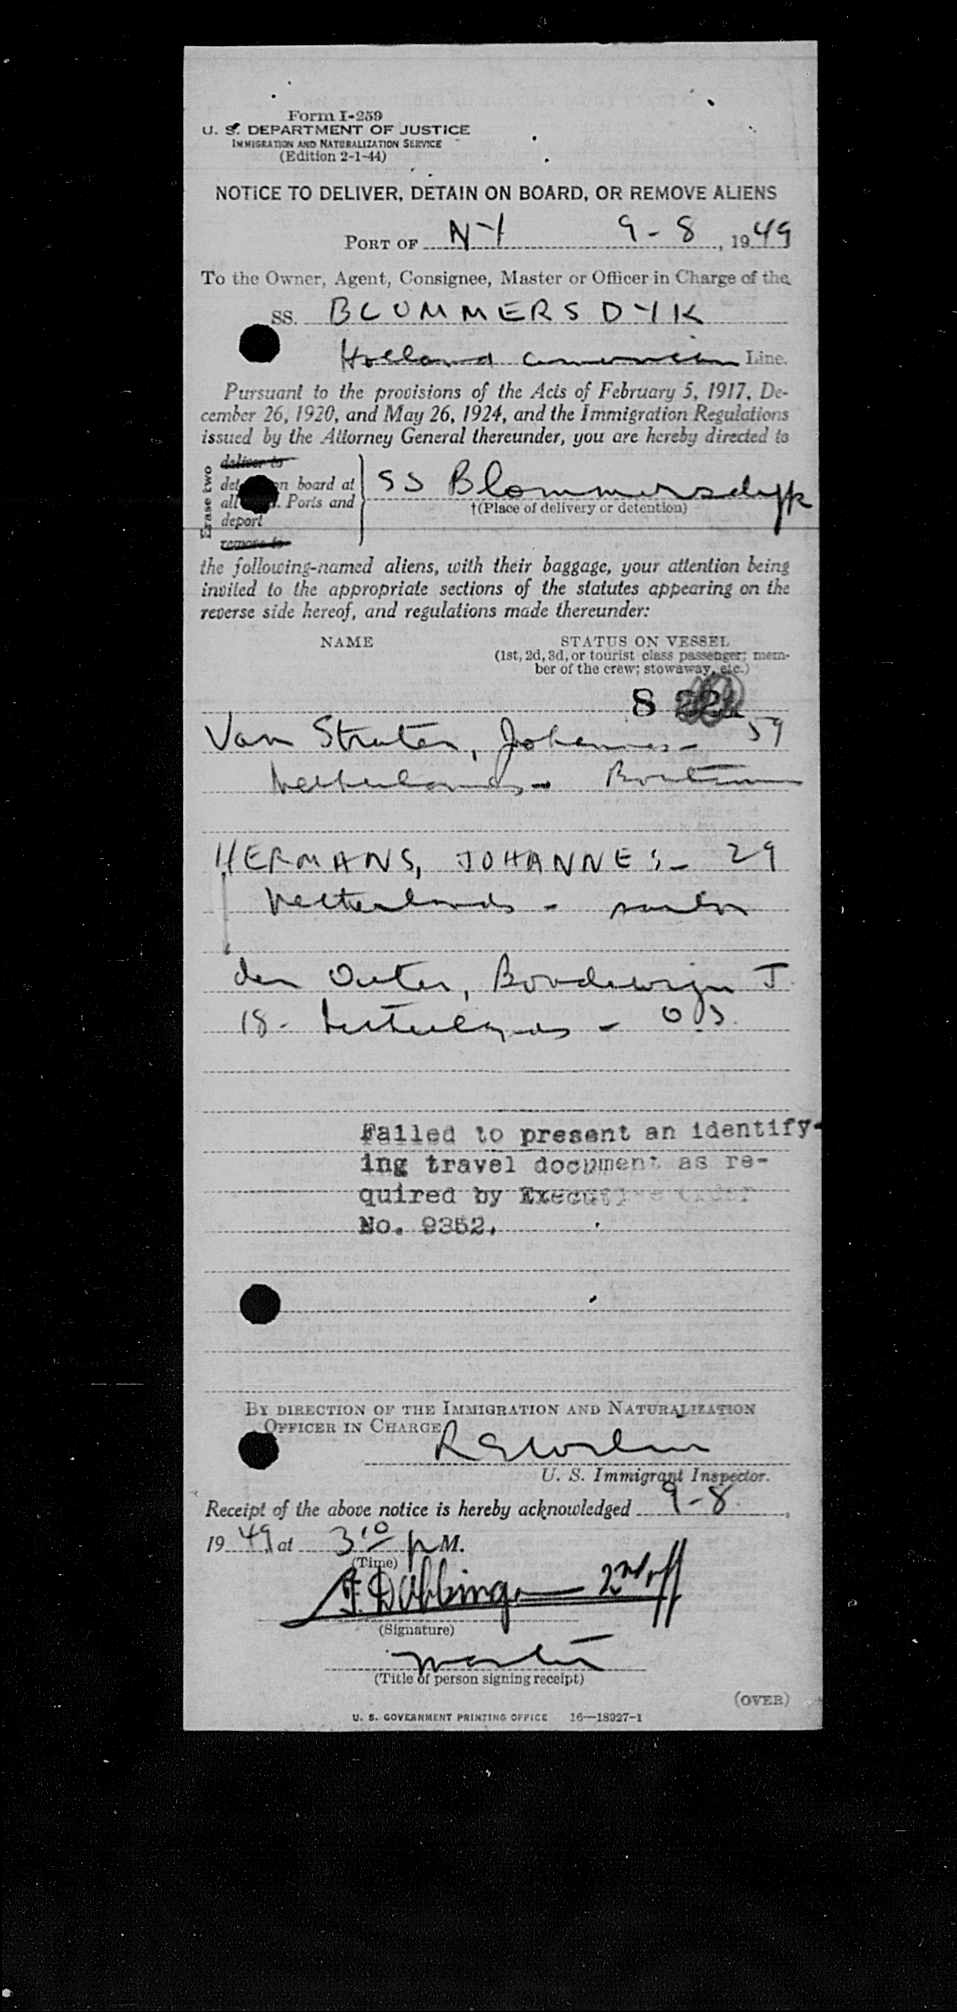 Form I-259
U. S. DEPARTMENT OF JUSTICE
IMMIGRATION AND NATURALIZATION SERVICE
(Edition 2-1-44)
NOTICE TO DELIVER, DETAIN ON BOARD, OR REMOVE ALIENS
PORT OF NY 9-8, 1949
To the Owner, Agent, Consignee, Master or Officer in Charge of the
SS. BLOMMERSDYK
Holland American Line.
Pursuant to the provisions of the Acts of February 5, 1917, De-
cember 26, 1920, and May 26, 1924, and the Immigration Regulations
issued by the Attorney General thereunder, you are hereby directed to
Erase two
deliver to
det on board at
all Ports and
deport
remove to
SS Blommersdyk
†(Place of delivery or detention)
the following-named aliens, with their baggage, your attention being
invited to the appropriate sections of the statutes appearing on the
reverse side hereof, and regulations made thereunder:
NAME STATUS ON VESSEL
(1st, 2d, 3d, or tourist class passenger; mem-
ber of the crew; stowaway, etc.)
8
Van Straten, Johannes - 59
Netherlands - Boatsman
HERMANS, JOHANNES - 29
Netherlands - sailor
den Outer, Boudewijn J.
18 - Netherlands - O.S.
Failed to present an identify-
ing travel document as re-
quired by Executive Order
No. 9352.
BY DIRECTION OF THE IMMIGRATION AND NATURALIZATION
OFFICER IN CHARGE
U. S. Immigrant Inspector.
Receipt of the above notice is hereby acknowledged 9-8,
1949 at 3:10 P M.
(Time)
2nd off
(Signature)
master
(Title of person signing receipt)
(OVER)
U. S. GOVERNMENT PRINTING OFFICE 16—18927-1